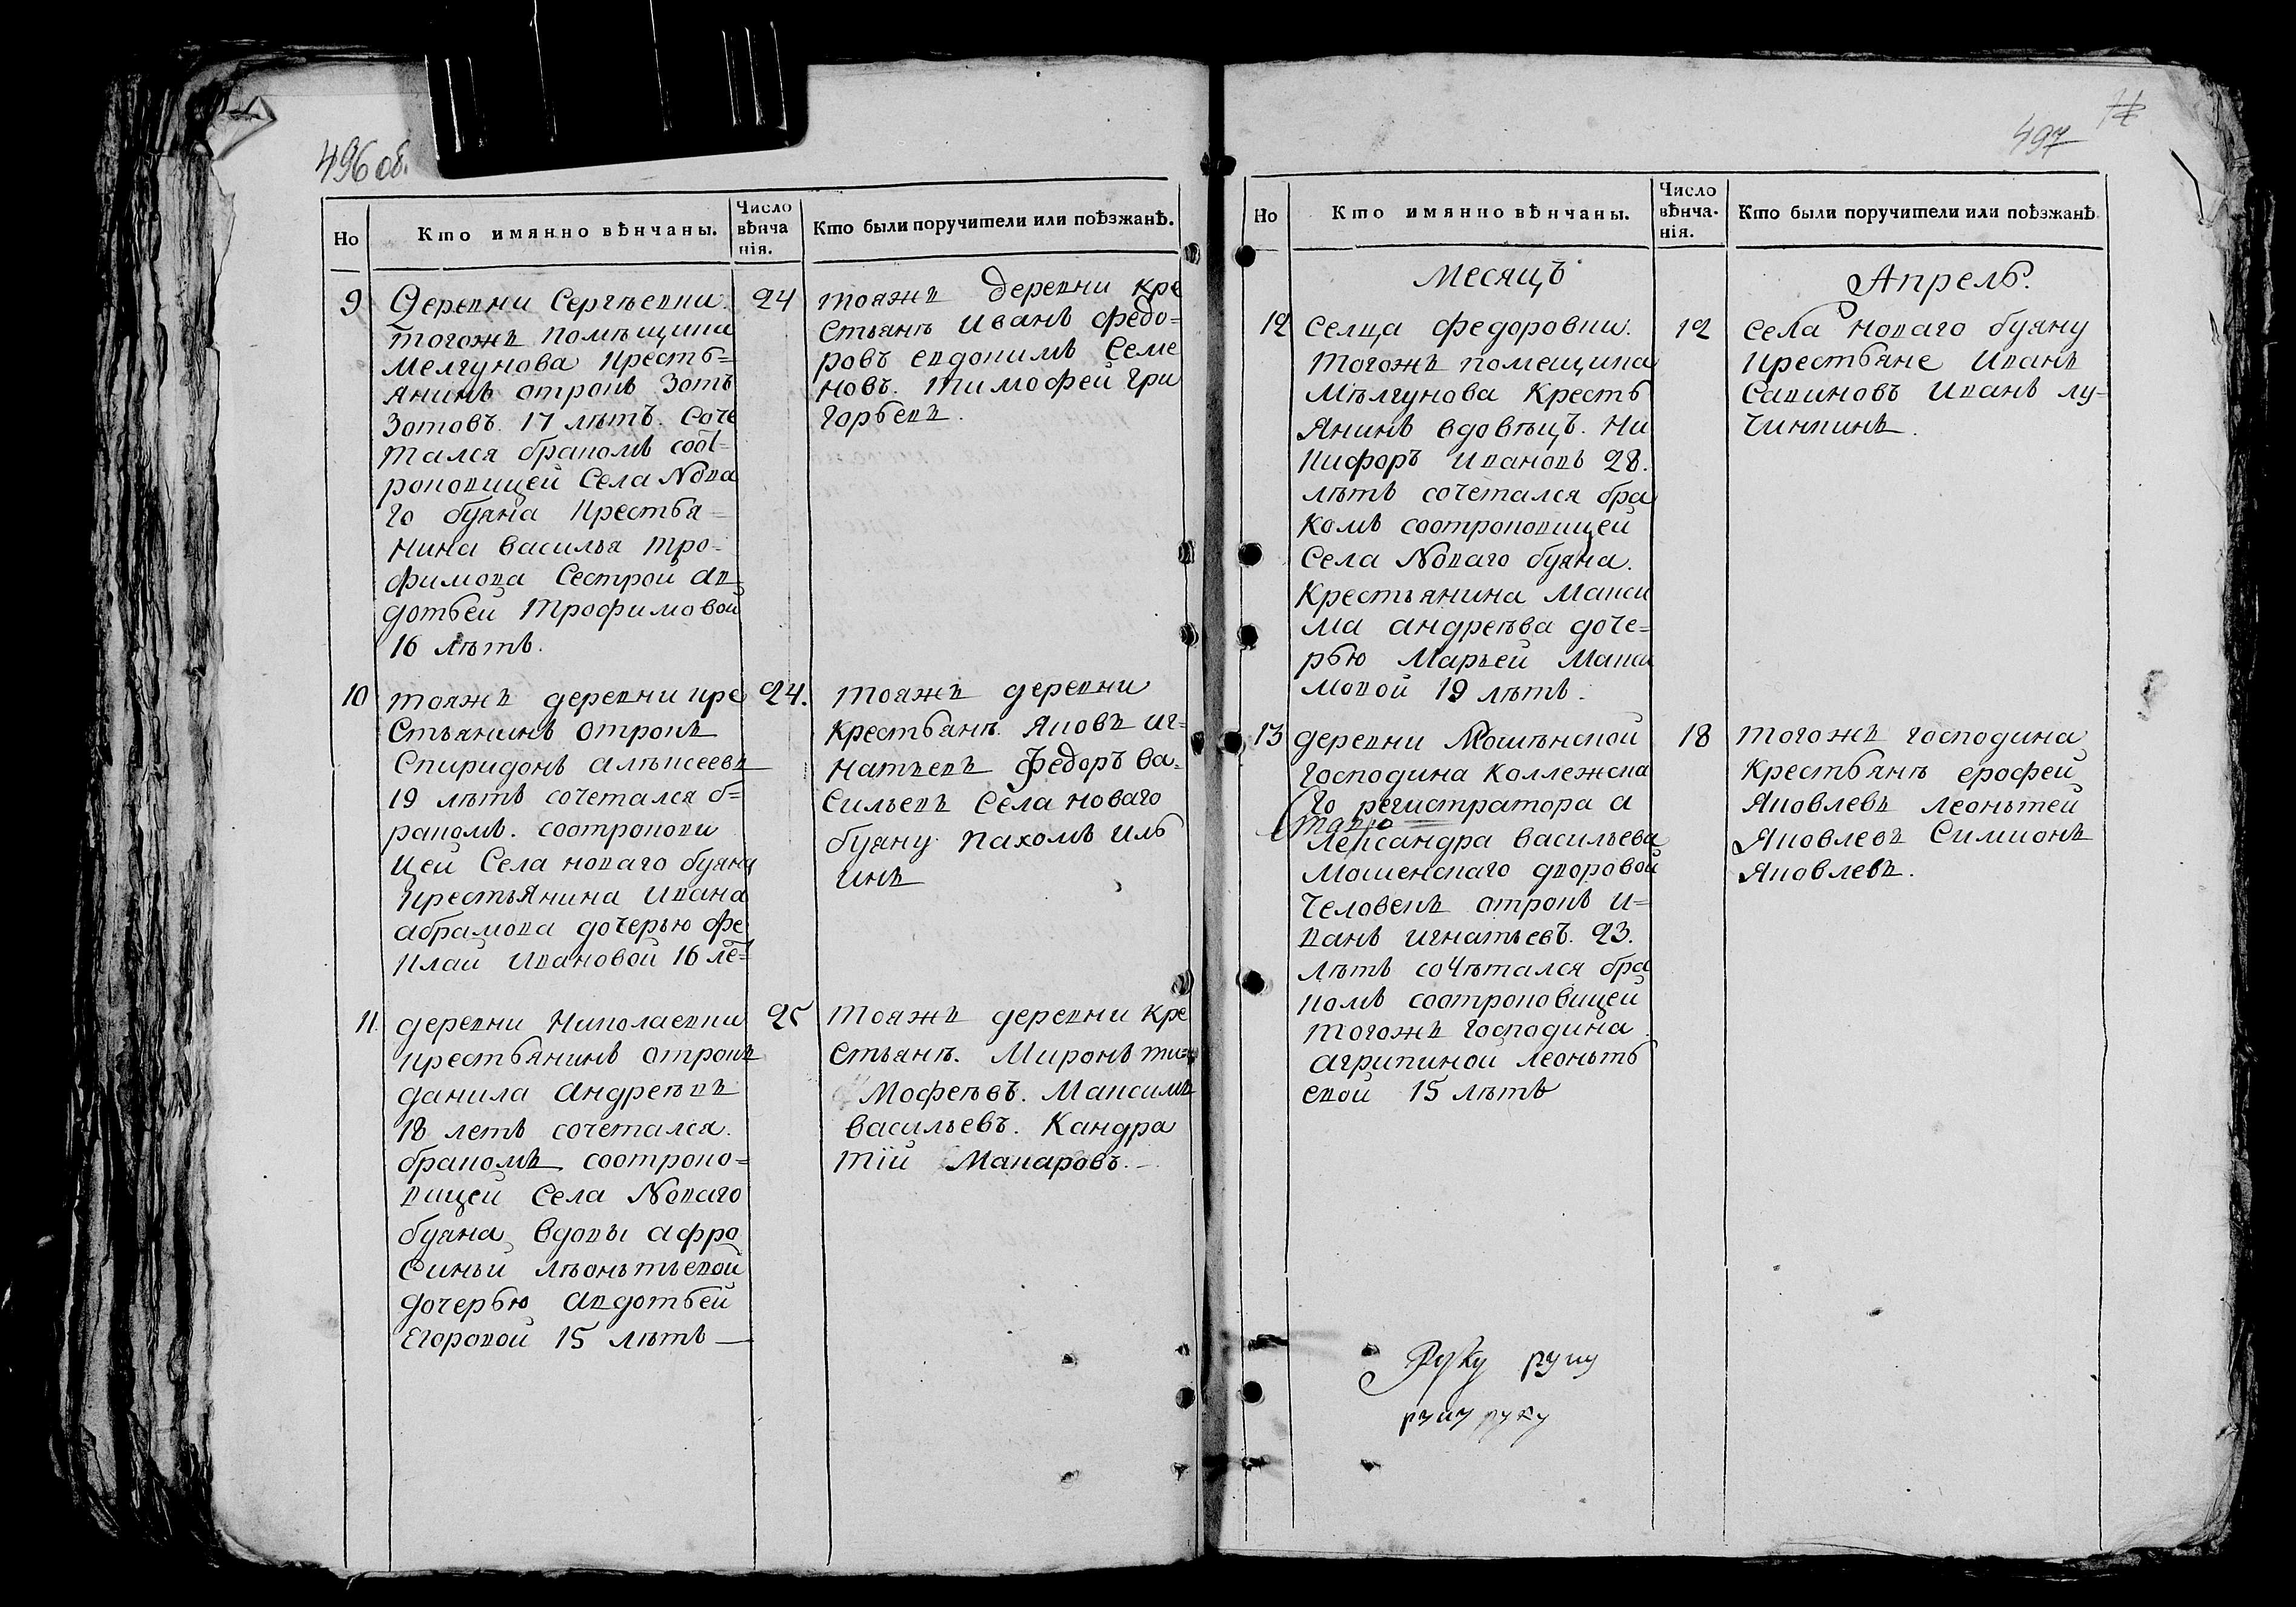 496 об.
Но
Кто имянно вѣнчаны.
Число
вѣнча
нія.
Кто были поручители или поѣзжанѣ.
9 Деревни Сергѣевки
тогожъ помѣщика
Мелгунова кресть=
янинъ отрокъ Зотъ
Зотовъ. 17 лѣтъ. Соче
тался бракомъ соот-
роковицей Села Нова
го буяна крестья-
нина василья тро-
фимова Сестрой ав-
дотьей Трофимовой
16 лѣтъ.
24
тояжъ деревни кре
стьянѣ иванъ федо=
ровъ евдокимъ Семе
новъ. тимофей гри
горьевъ.
10 тояжъ деревни кре
стьянинъ отрокъ
Спиридонъ алѣксеевъ
19 лѣтъ сочетался б=
ракомъ. соотрокови
цей Села новаго буяну
крестьянина ивана
абрамова дочерью фе
клай ивановой 16 ле-
24.
тояжъ деревни
крестьянѣ. яковъ иг=
натьевъ федоръ ва=
сильевъ Села новаго
буяну пахомъ иль
инъ
11. деревни Николаевки
крестьянинъ отрокъ
данила андреѣвъ
18 летъ сочетался.
бракомъ соотроко=
вицей Села Новаго
буяна вдовы афро
синьи лѣонтьевой
дочерью авдотьей
Егоровой 15 лѣтъ —
25
тояжъ деревни кре
стьянѣ. Миронъ ти=
мофеѣвъ. Максимъ
васильевъ. Кандра
тій Макаровъ.
497
Но
Кто имянно вѣнчаны.
Число
вѣнча-
нія.
Кто были поручители или поѣзжанѣ
Месяцъ
Апрель.
12 Селца федоровки.
тогожъ помещика
Мѣлгунова кресть
янинъ вдовѣцъ. Ни
кифоръ ивановъ 28.
лѣтъ сочетался бра
комъ соотроковицей
Села Новаго буяна.
Крестьянина Макси
ма андреѣва доче=
рью Марьей Макси
мовой 19 лѣтъ.
12
Села новаго буяну
крестьяне иванъ
Савиновъ иванъ лу-
чинкинъ.
13 деревни Мошѣнской
господина коллежска
го регистратора а
лександра васильева
Мошенскаго дворовой
человекъ отрокъ и=
ванъ игнатьевъ. 23.
лѣтъ сочѣтался бра
комъ соотроковицей
тогожъ господина
агрипиной леонть
евой 15 лѣтъ
18
тогожъ господина
крестьянѣ ерофей
яковлевъ леонтей
яковлевъ Симионъ
яковлевъ.
Руку руку
руку руку